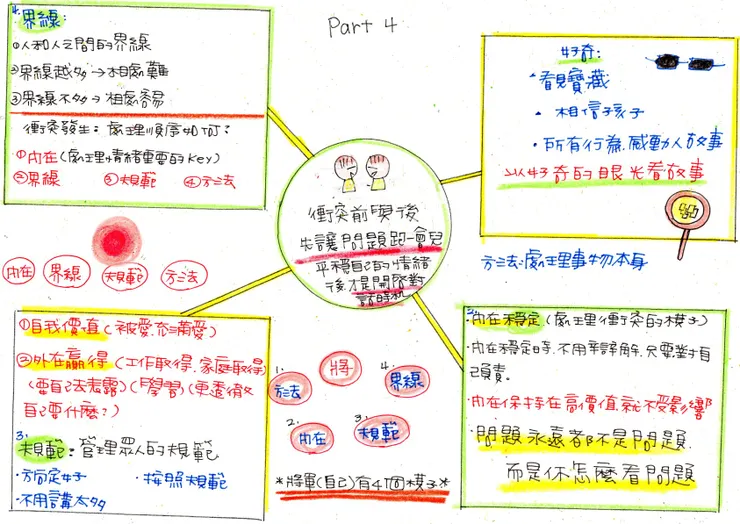 Part 4
4. 界線:
①人和人之間的界線
②界線越多→相處難
③界線不多→相處容易
衝突發生:處理順序如何?
①內在(處理情緒重要的Key)
②界線 ③規範 ④方法
內在 界線 規範 方法
衝突前與後
先讓問題跑一會兒
平穩自己的情緒
後才是開啟對
話時机
好奇:
·看見寶藏
·相信孩子
·所有行為,感動人故事
以好奇的眼光看故事
方法:處理事物本身
①自我價值(被愛,充滿愛)
②外在贏得(工作取得,家庭取得)
(要自己去表露)(學習)(更透徹
自己要什麼?)
3.
規範:管理眾人的規範
·方向定好 ·按照規範
·不用講太多
1. 方法
將
4. 界線
2. 內在
3. 規範
*將軍(自己)有4個樸子*
2. 內在穩定(處理衝突的樸子)
·內在穩定時,不用辛詳解,只要對自
己負責。
·內在保持在高價值就不受影響
·問題永遠都不是問題,
而是你怎麼看問題